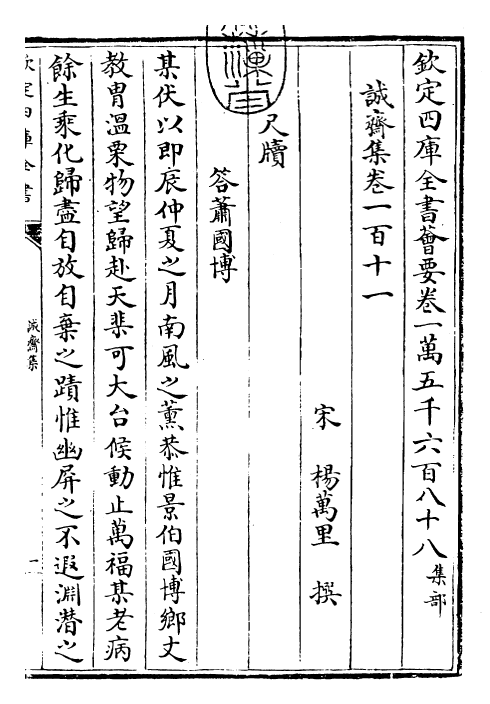 欽定四庫全書薈要卷一萬五千六百八十八 集部
誠齋集卷一百十一
宋 楊萬里 撰
尺牘
答蕭國博
某伏以即辰仲夏之月南風之薰恭惟景伯國博鄉丈
教冑溫栗物望歸赴天棐可大台候動止萬福某老病
餘生乘化歸盡自放自棄之蹟惟幽屏之不遐淵潛之
欽定四庫全書
誠齋集
一